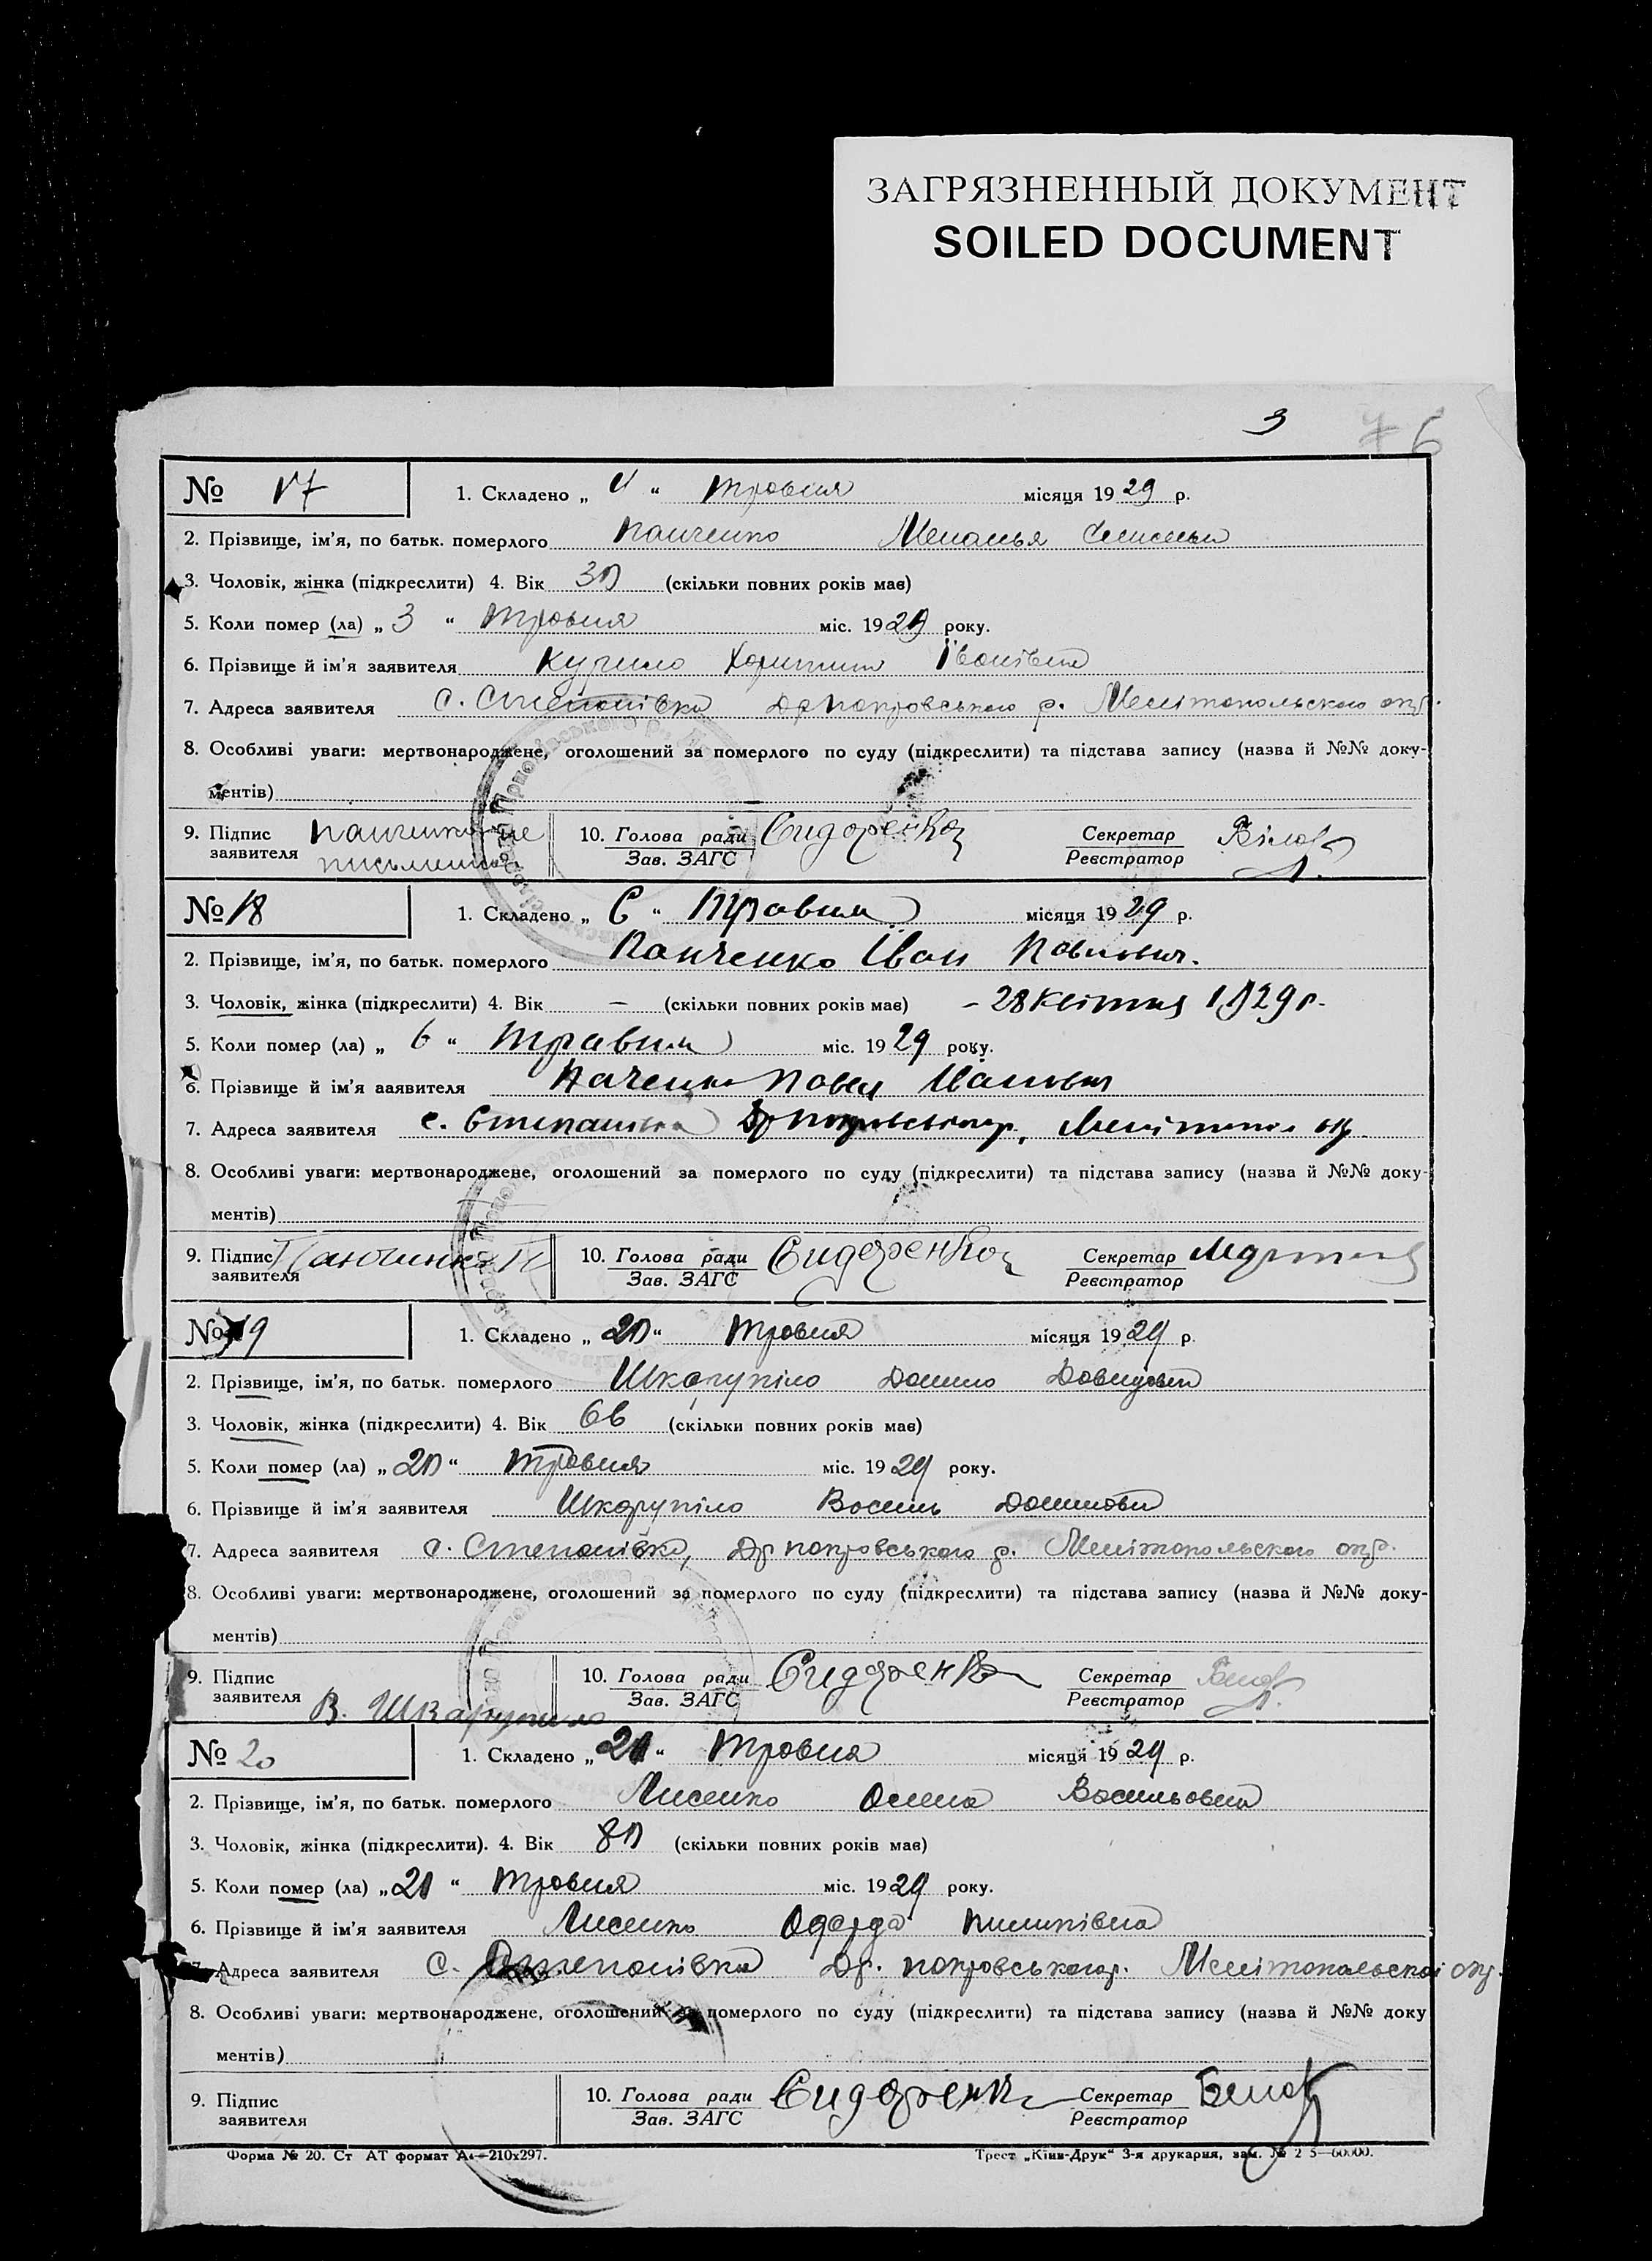 ЗАГРЯЗНЕННЫЙ ДОКУМЕНТ
SOILED DOCUMENT
3 6
№ 17 1. Складено „ 4 “ травня місяця 1929 р.
2. Прізвище, ім'я, по батьк. померлого Панченко Меланья
3. Чоловік, жінка (підкреслити) 4. Вік 30 (скільки повних років має)
5. Коли помер (ла) „ 3 “ травня міс. 1929 року.
6. Прізвище й ім'я заявителя Курило Харитина Іванівна
7. Адреса заявителя с. Степанівка Др покровського р. Мелітопольского окр.
8. Особливі уваги: мертвонароджене, оголошений за померлого по суду (підкреслити) та підстава запису (назва й №№ доку-
ментів)
9. Підпис заявителя Панченко не письменна 10. Голова ради Зав. ЗАГС Сидоренко Секретар Реєстратор
№ 18 1. Складено „ 6 “ травня місяця 1929 р.
2. Прізвище, ім'я, по батьк. померлого Панченко Іван Павлович.
3. Чоловік, жінка (підкреслити) 4. Вік — (скільки повних років має) – 28 Квітня 1929 р.
5. Коли помер (ла) „ 6 “ травня міс. 1929 року.
6. Прізвище й ім'я ааявителя Паченко Павел Іванович
7. Адреса заявителя с. Степанівка Др покровського р, Мелітопол окр.
8. Особливі уваги: мертвонароджене, оголошений за померлого по суду (підкреслити) та підстава запису (назва й №№ доку-
ментів)
9. Підпис заявителя Панчинко П 10. Голова ради Зав. ЗАГС Сидоренко Секретар Реєстратор
№ 19 1. Складено „ 20 “ травня місяця 1929 р.
2. Прізвище, ім'я, по батьк. померлого Шкарупіло Данило Давидович
3. Чоловік, жінка (підкреслити) 4. Вік 66 (скільки повних років має)
5. Коли помер (ла) „ 20 “ травня міс. 1929 року.
6. Прізвище й ім'я заявителя Шкарупіло Василь Данилович
7. Адреса заявителя с. Степанівка, Др покровського р. Мелітопольского окр.
8. Особливі уваги: мертвонароджене, оголошений за померлого по суду (підкреслити) та підстава запису (назва й №№ доку-
ментів)
9. Підпис заявителя В. Шкарупило 10. Голова ради Зав. ЗАГС Сидоренко Секретар Реєстратор
№ 20 1. Складено „ 21 “ травня місяця 1929 р.
2. Прізвище, ім'я, по батьк. померлого Лисенко Васильовна
3. Чоловік, жінка (підкреслити). 4. Вік 80 (скільки повних років має)
5. Коли помер (ла) „ 21 “ травня міс. 1929 року.
6. Прізвище й ім'я заявителя Лисенко Одарда Пилипівна
7. Адреса заявителя с. Степанівка Др. покровського р. Мелітопольскої окр.
8. Особливі уваги: мертвонароджене, оголошений за померлого по суду (підкреслити) та підстава запису (назва й №№ доку
ментів)
9. Підпис заявителя 10. Голова ради Зав. ЗАГС Сидоренко Секретар Реєстратор
Форма № 20. Ст АТ формат А4—210х297. Трест „Київ-Друк“ 3-я друкарня, зам. №